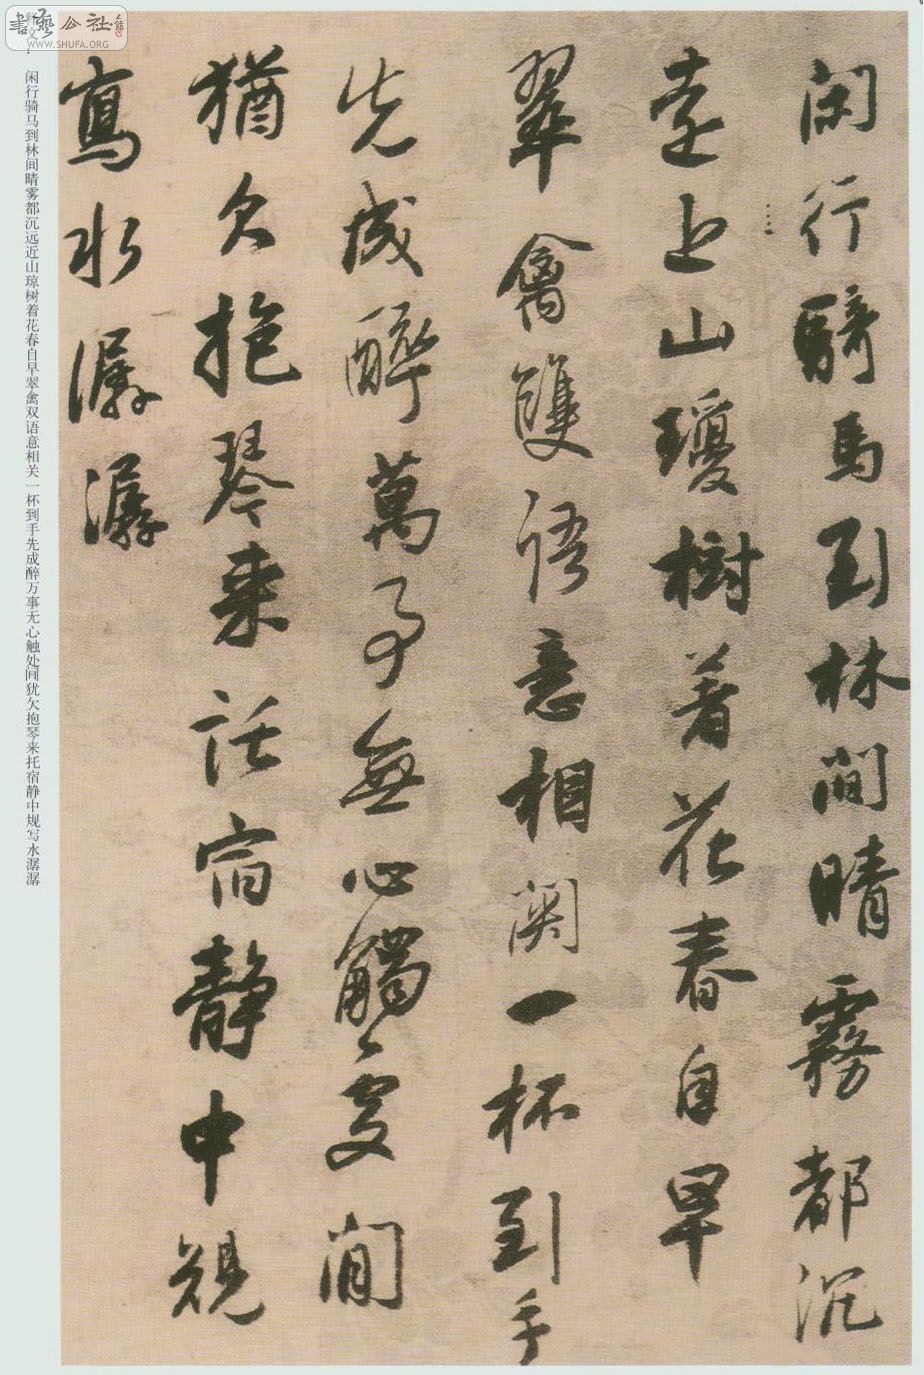 閑行騎馬到林間晴霧都沉
遠近山瓊樹着花春自早
翠禽雙語意相関一杯到手
先成醉萬事無心觸處間
猶欠抱琴来託宿静中規
寫水潺潺
闲行骑马到林间晴雾都沉远近山琼树着花春自早翠禽双语意相关一杯到手先成醉万事无心触处间犹欠抱琴来托宿静中规写水潺潺
書藝公社
WWW.SHUFA.ORG